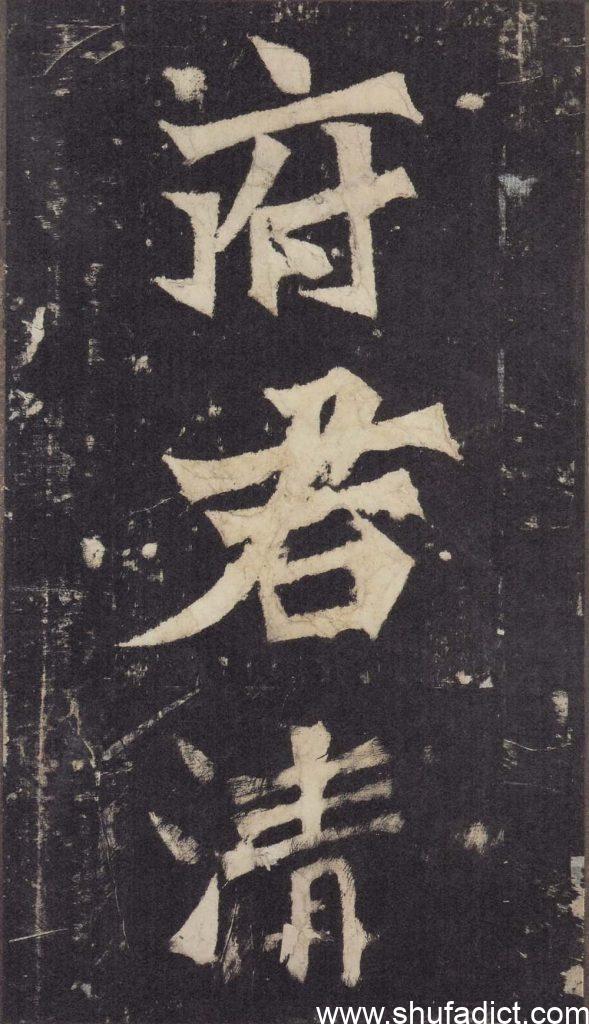 府君清
www.shufadict.com